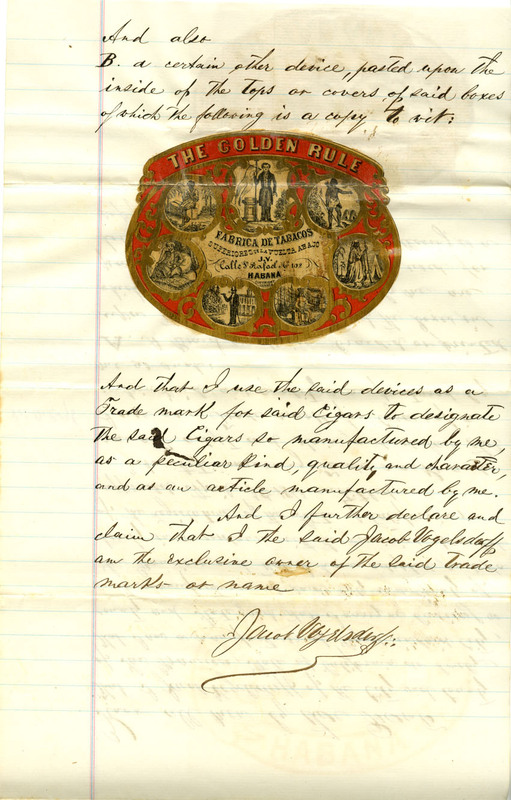 And also
B. a certain other device, pasted upon the
inside of the tops or covers of said boxes
of which the following is a copy to wit:
THE GOLDEN RULE
FABRICA DE TABACOS
SUPERIORES DE LA VUELTA ABAJO
J.V.
Calle S. Rafael No
HABANA
And that I use the said devices as a
Trade mark for said Cigars to designate
the said Cigars so manufactured by me,
as a peculiar kind, quality and character,
and as an article manufactured by me.
And I further declare and
claim that I the said Jacob Vogelsdorff
am the exclusive owner of the said Trade
marks or name
Jacob Vogelsdorff